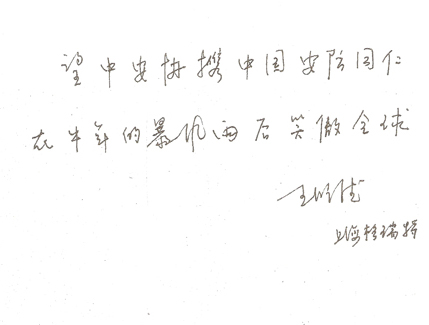 望中安协携中国安防同仁
在牛年的暴风雨后笑傲全球
王
上海